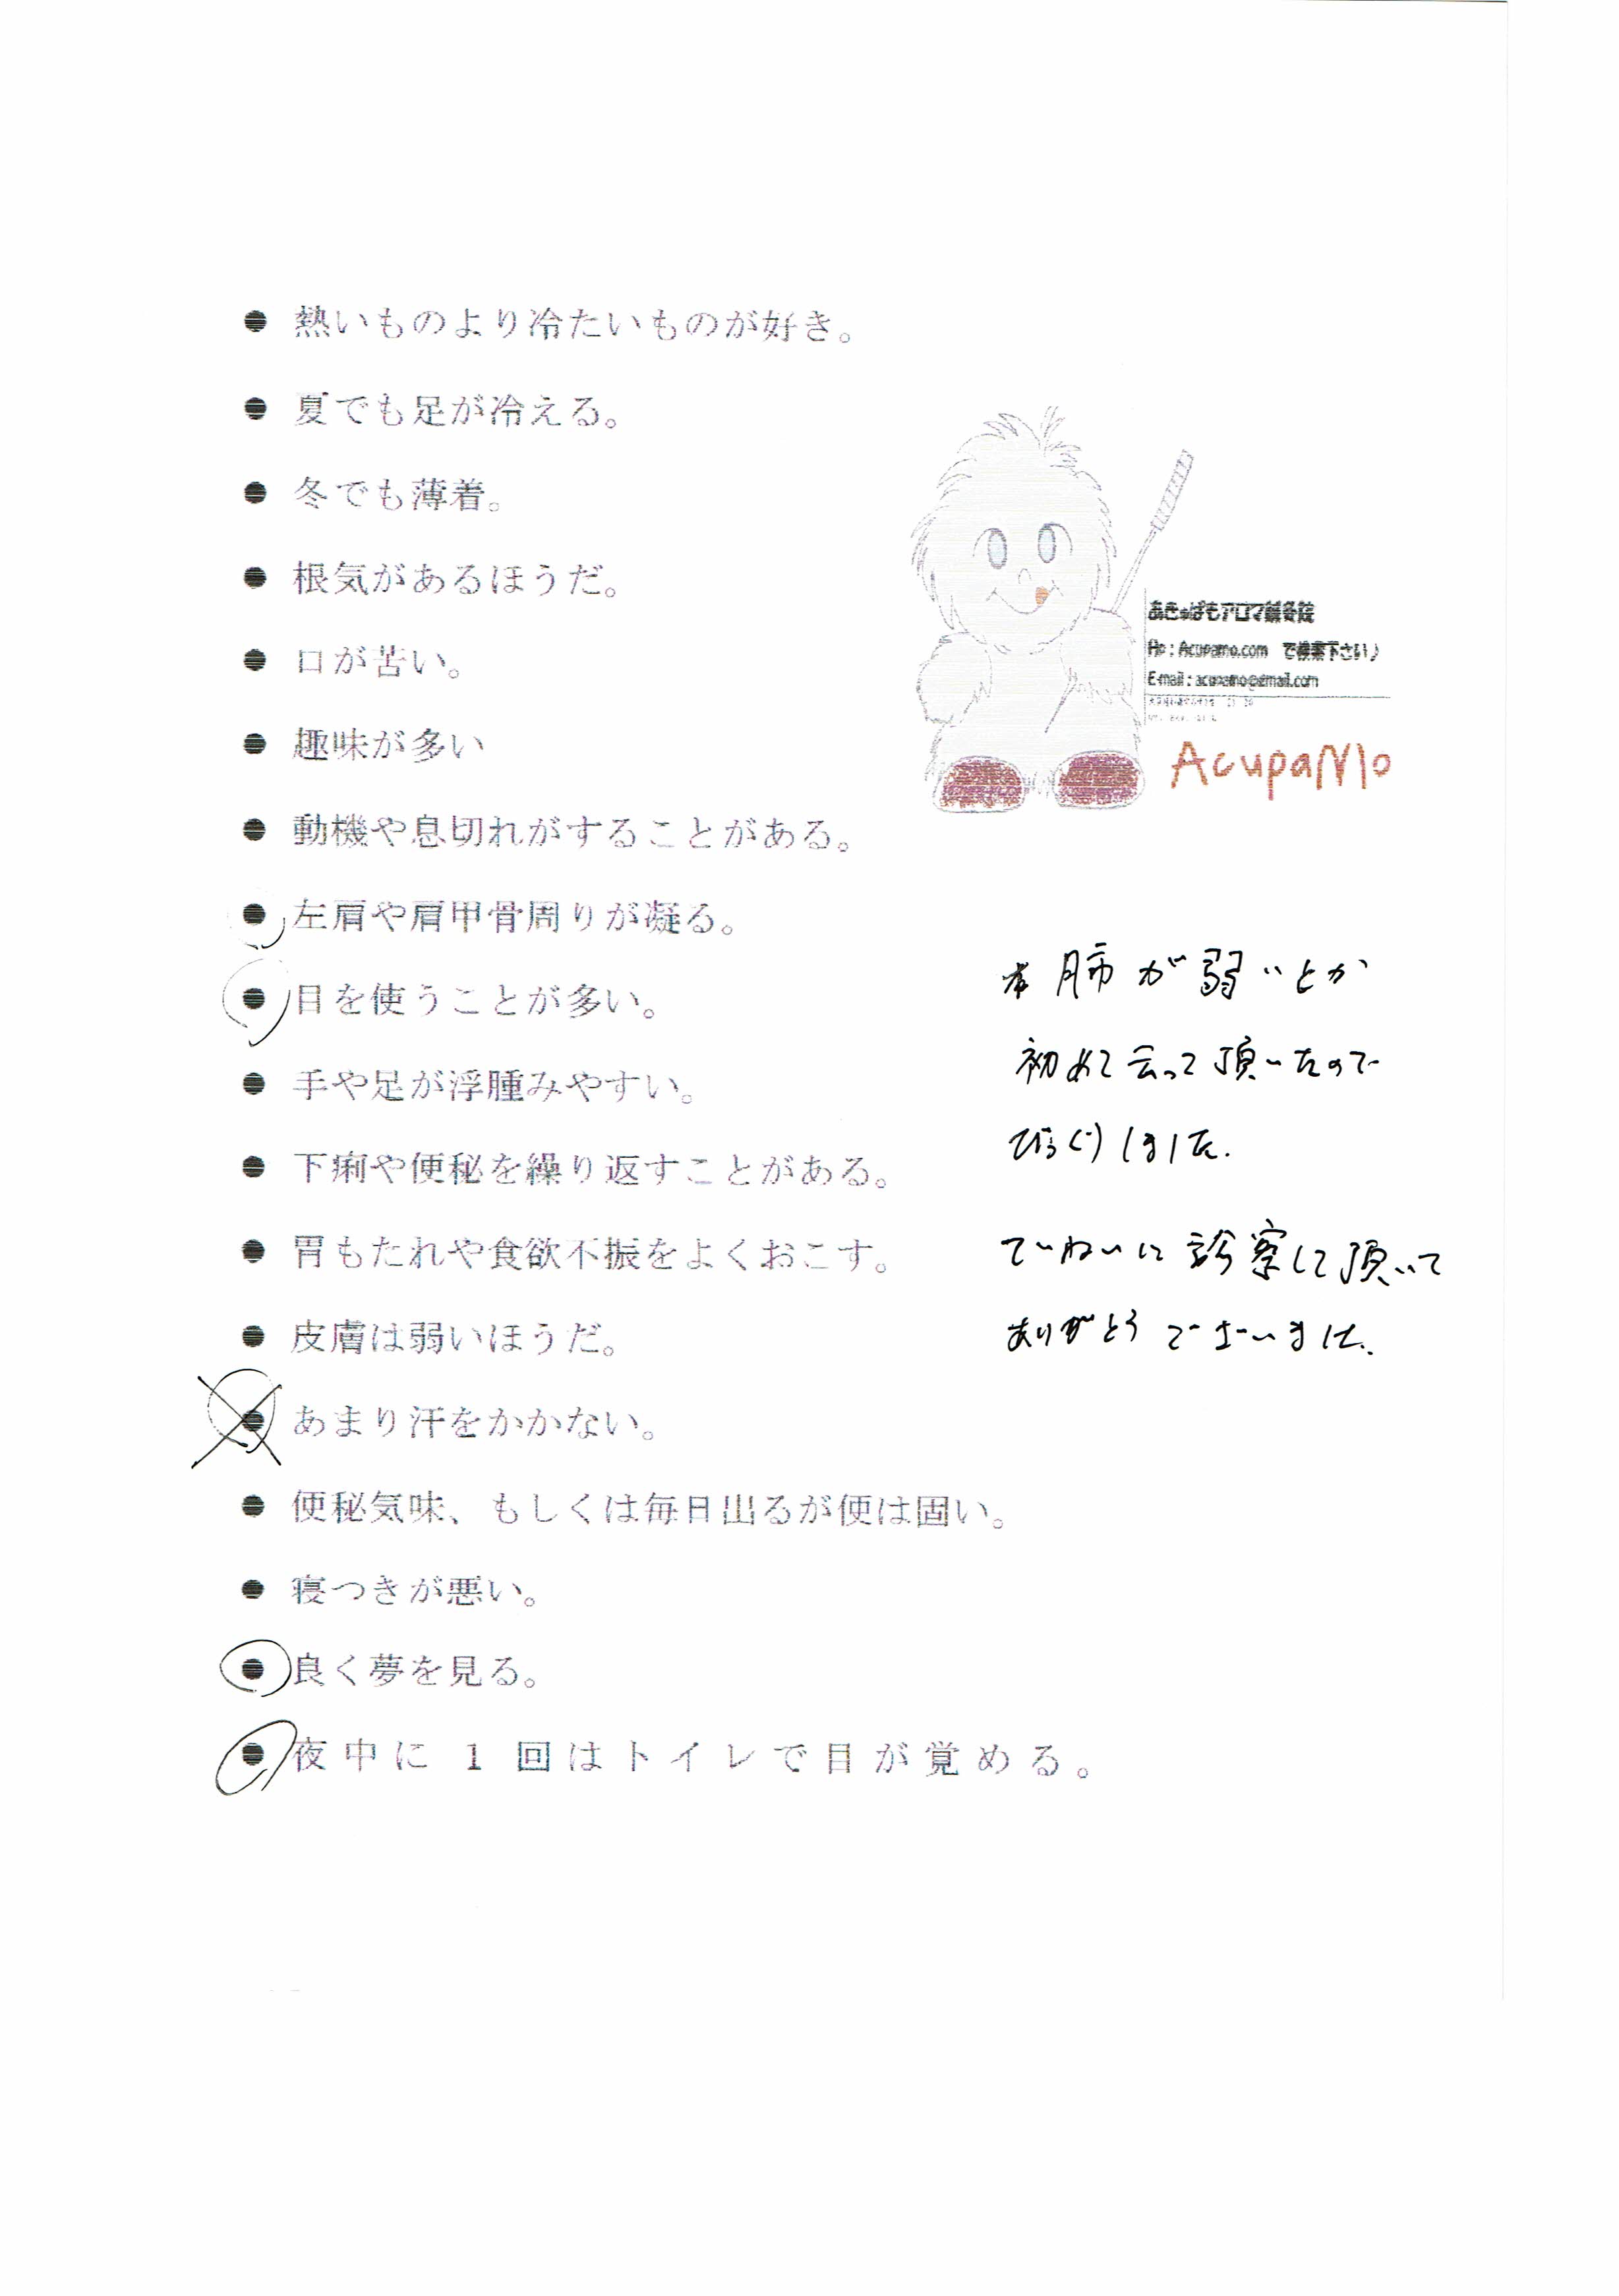 ● 熱いものより冷たいものが好き。
● 夏でも足が冷える。
● 冬でも薄着。
● 根気があるほうだ。
● 口が苦い。
● 趣味が多い
● 動機や息切れがすることがある。
● 左肩や肩甲骨周りが凝る。
● 目を使うことが多い。
● 手や足が浮腫みやすい。
● 下痢や便秘を繰り返すことがある。
● 胃もたれや食欲不振をよくおこす。
● 皮膚は弱いほうだ。
● あまり汗をかかない。
● 便秘気味、もしくは毎日出るが便は固い。
● 寝つきが悪い。
● 良く夢を見る。
● 夜中に 1 回はトイレで目が覚める。
あきゅぱもアロマ鍼灸院
Hp : Acupamo.com で検索下さい♪
E-mail : acupamo@gmail.com
AcupaMo
肺が弱いとか
初めて云って頂いたので
びっくりしました.
ていねいに診察して頂いて
ありがとうございました.